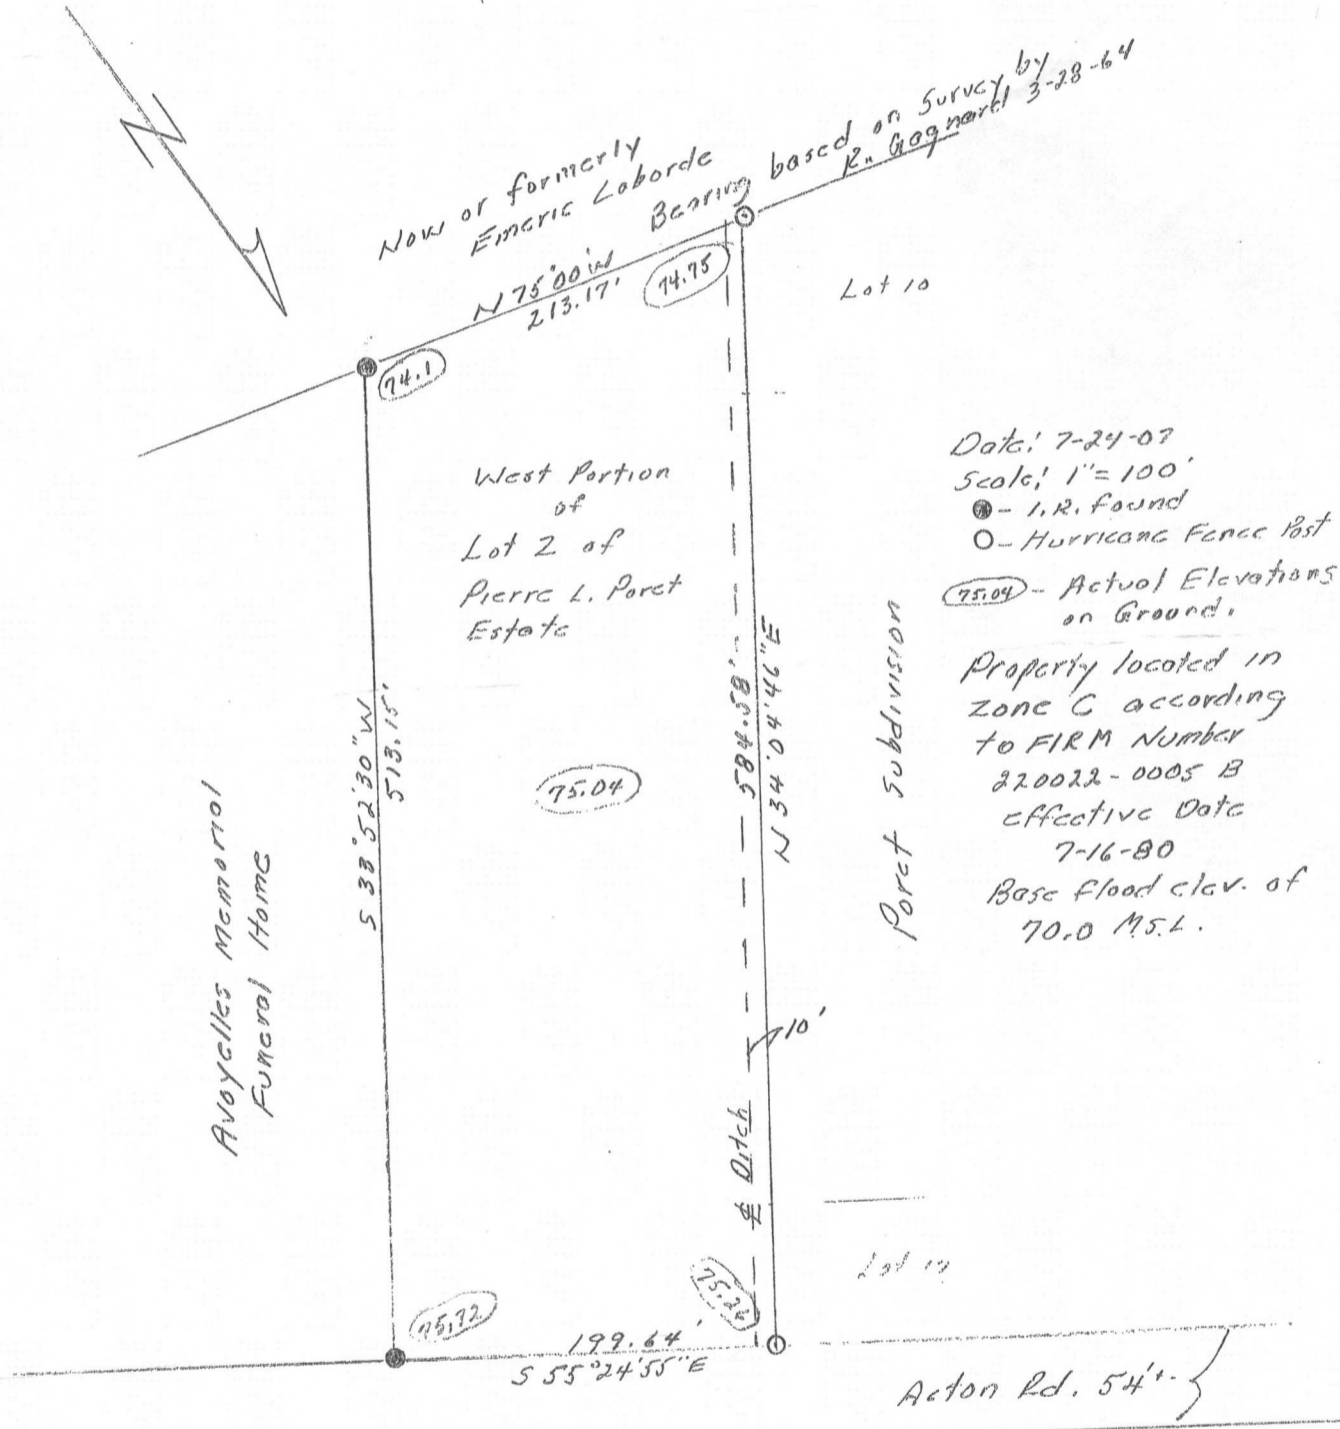 Now or formerly
Emeric Laborde
Bearing based on Survey by
R. Gagnard 3-28-64
N 75°00'W
213.17'
74.75
74.1
Lot 10
West Portion
of
Lot 2 of
Pierre L. Poret
Estate
Date: 7-24-07
Scale: 1"= 100'
- I.R. found
- Hurricane Fence Post
75.04 - Actual Elevations
on Ground.
Property located in
zone C according
to FIRM Number
220022-0005 B
effective Date
7-16-80
Base flood elev. of
70.0 M.S.L.
S 33°52'30"W
513.15'
584.58'
N 34°04'46"E
75.04
Poret Subdivision
Avoyelles Memorial
Funeral Home
10'
℄ Ditch
75.72
75.26
199.64'
S 55°24'55"E
Lot
Acton Rd. 54'±